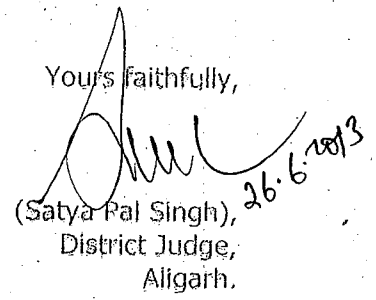 Yours faithfully,
26.6.2013
(Satya Pal Singh),
District Judge,
Aligarh.